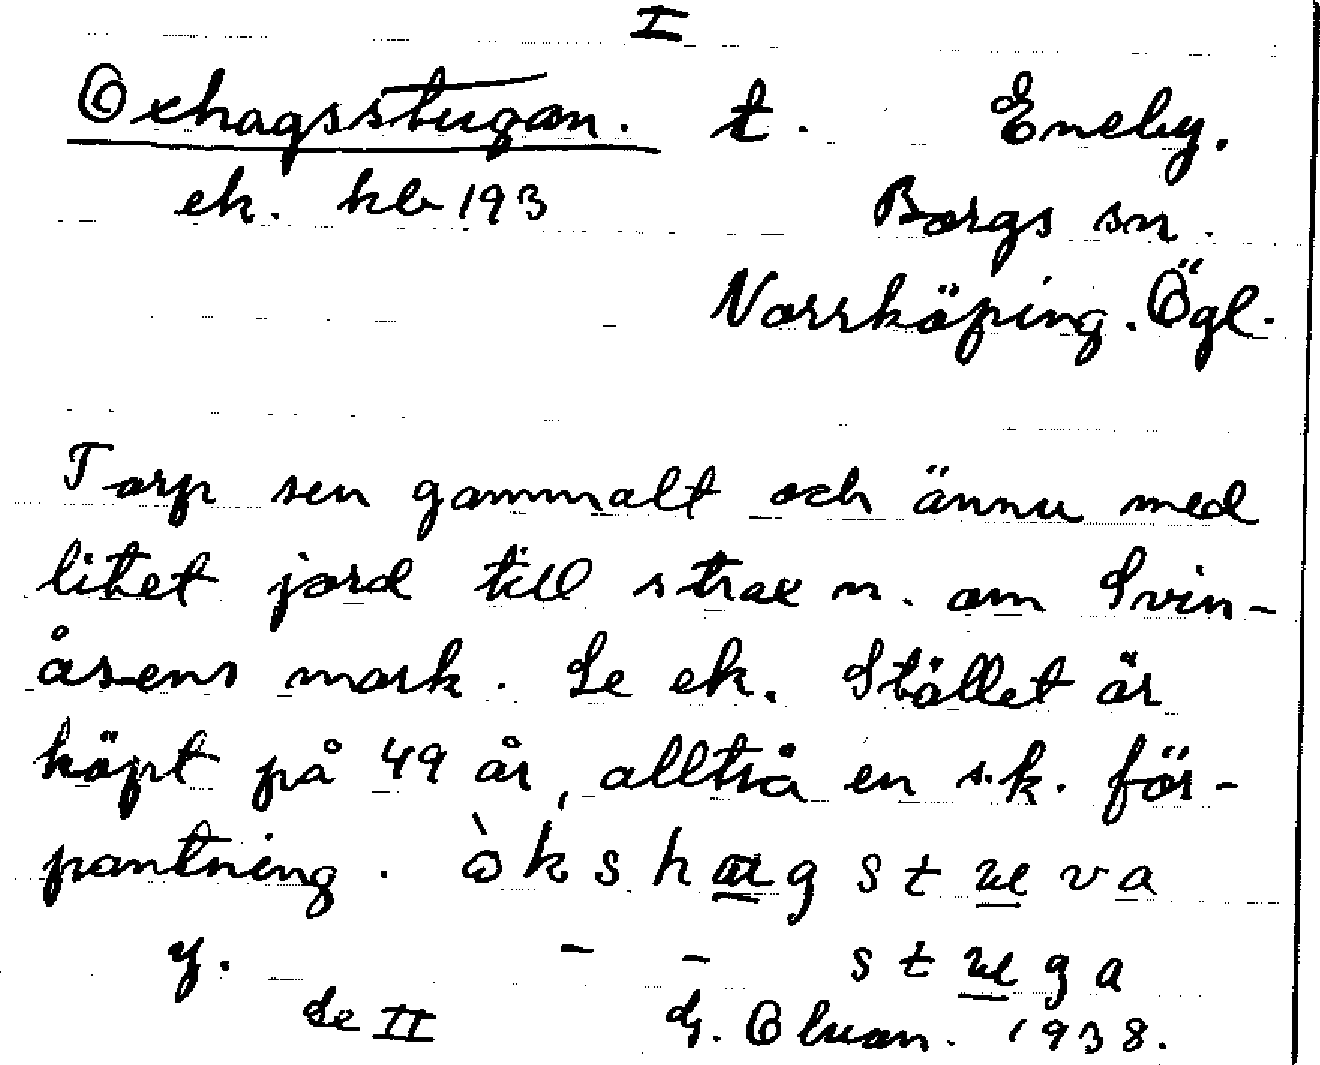 I
Oxhagsstugan. t. Eneby.
ek. kb 193 Borgs sn.
Norrköping. Ögl.
Torp sen gammalt och ännu med
litet jord till strax n. om Svin-
åsens mark. Se ek. Stället är
köpt på 49 år, alltså en s.k. för-
pantning. òkshagstueva
y. - - stuega
Se II G. Olson. 1938.